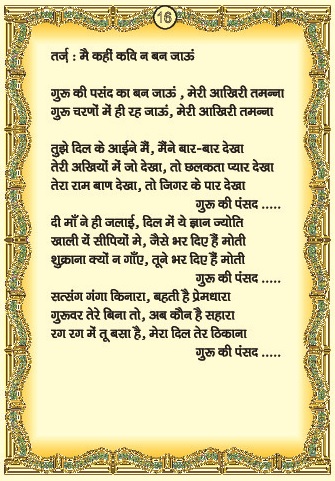 16
तर्ज : मै कहीं कवि न बन जाऊं
गुरू की पसंद का बन जाऊं , मेरी आखिरी तमन्ना
गुरू चरणों में ही रह जाऊं, मेरी आखिरी तमन्ना
तुझे दिल के आईने मैं, मैंने बार-बार देखा
तेरी अखियों में जो देखा, तो छलकता प्यार देखा
तेरा राम बाण देखा, तो जिगर के पार देखा
गुरू की पंसद .....
दी माँ ने ही जलाई, दिल में ये ज्ञान ज्योति
खाली यें सीपियों मे, जैसे भर दिए हैं मोती
शुक्राना क्यों न गाँए, तूने भर दिए हैं मोती
गुरू की पंसद .....
सत्संग गंगा किनारा, बहती है प्रेमधारा
गुरूवर तेरे बिना तो, अब कौन है सहारा
रग रग में तू बसा है, मेरा दिल तेर ठिकाना
गुरू की पंसद .....